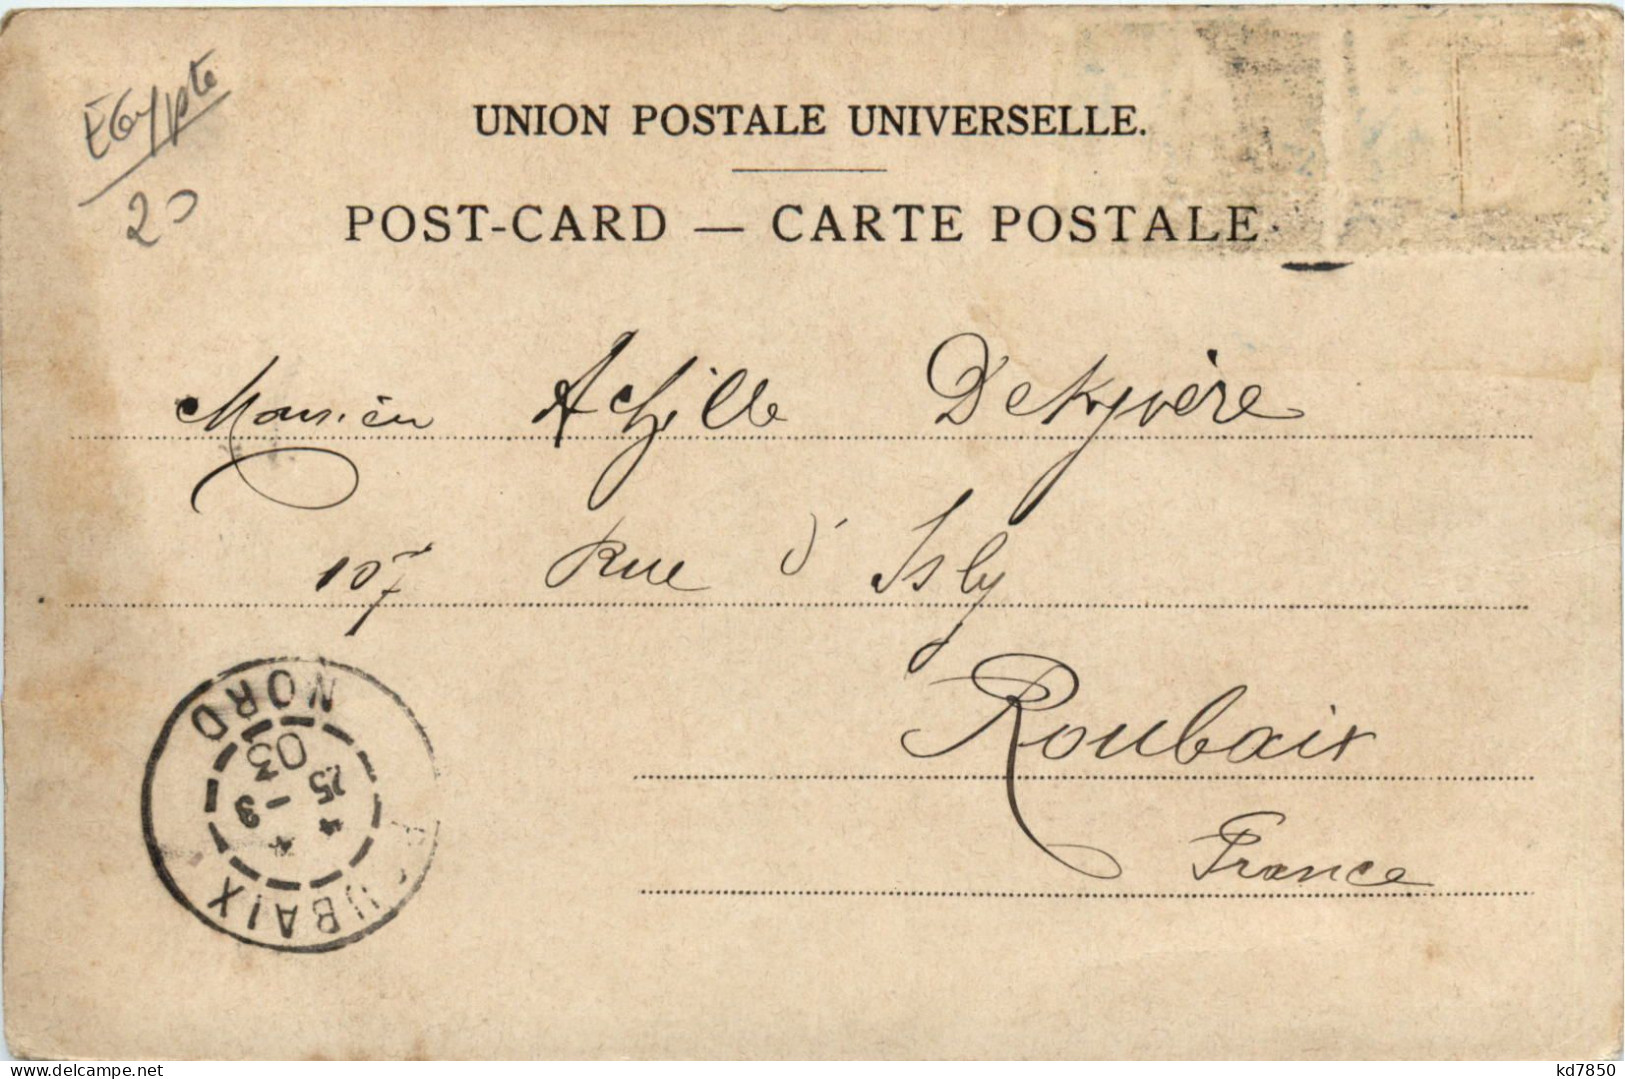 Égypte
20
UNION POSTALE UNIVERSELLE.
POST-CARD — CARTE POSTALE
Monsieur Achille Dekyvère
107 Rue d'Isly
Roubaix
France
ROUBAIX
NORD
25
03
kd7850